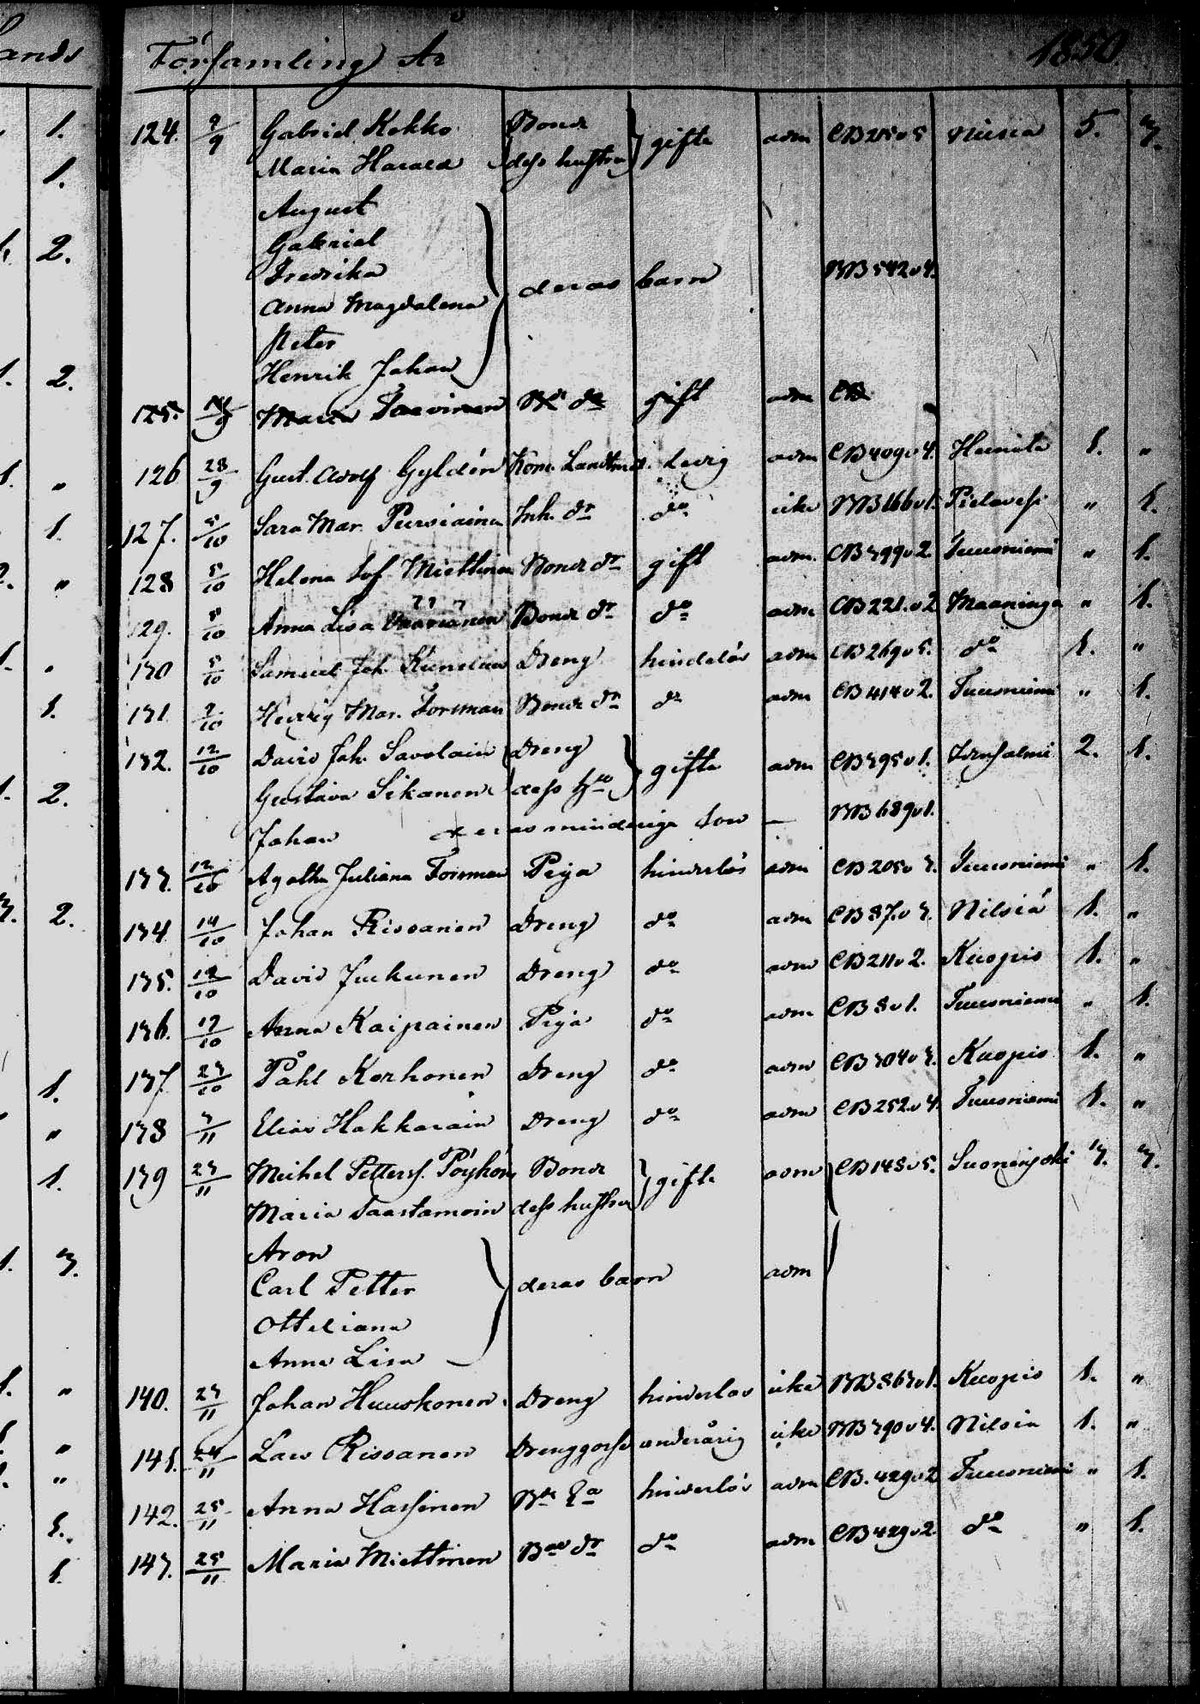 Församling År 1850
124. 9/9 Gabriel Kokko Bonde gifte adm CB 250 5 Nilsiä 5. 3.
Maria Harald dess hustru
August
Gabriel
Fredrika
Anna Magdalena deras barn BB 542 v 4.
Peter
Henrik Johan
125. Maria Taavinen gift adm CB
126 28/9 Gust. Adolf Gyldén Kom. Landtmät. ledig adm CB 409 v 4. 1. "
127. 5/10 Sara Mar. Inh. dr do icke BB 166 v 1. Pielavesi " 1.
128 5/10 Helena Sof Miettinen Bonde dr gift adm. CB 399 v 2 Tuusniemi " 1.
129. 5/10 Anna Lisa Bonde dr do adm CB 221 v 2 Maaninga " 1.
130 5/10 Samuel Joh. Dreng hinderlös adm CB 269 v 5. do 1. "
131 Hedvig Mar. Forsman Bonde dr do adm CB 414 v 2. Tuusniemi " 1.
132. 12/10 David Joh. Savolain Dreng gifte adm CB 395 v 1. Idensalmi 2. 1.
Gustava Sikanen dess hu
Johan deras minderige son — BB 689 v 1.
133. 12/10 Agatha Juliana Forsman Piga hinderlös adm CB 205 v 3. Tuusniemi " 1.
134 14/10 Johan Rissanen Dreng do adm CB 37 v 3. Nilsiä 1. "
135. David Juckunen Dreng do adm CB 211 v 2. Kuopio 1. "
136. 17/10 Anna Kaipainen Piga do adm CB 8 v 1. Tuusniemi " 1.
137. 23/10 Påhl Korhonen Dreng do adm CB 304 v 3. Kuopio 1. "
138 3/11 Elias Hakkarain Dreng do adm CB 252 v 4. Tuusniemi 1. "
139 23/11 Michel Petterss. Pöyhön Bonde gifte adm CB 148 v 5. Suonenjoki 3. 3.
Maria Taastamoin dess hustru
Aron
Carl Petter deras barn adm
Otteliana
Anna Lisa
140. 23/11 Johan Huuskonen Dreng hinderlös icke BB 863 v 1. Kuopio 1. "
141. 24/11 Lars Rissanen Drenggosse underårig icke BB 390 v 4. Nilsiä 1. "
142. 25/11 Anna Hassinen hinderlös adm CB. 429 v 2 Tuusniemi " 1.
143. 25/11 Maria Miettinen do adm CB 429 v 2. do " 1.